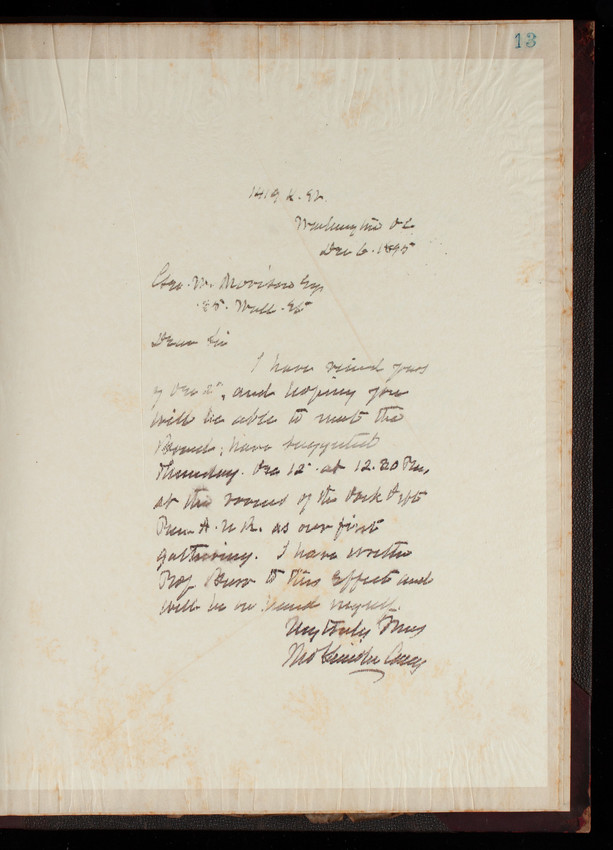 13
1419 K. St.
Washington D.C.
Dec 6. 1895
Geo. W. Morison Esq
35. Wall. St
Dear Sir
I have yours
of Dec 5", and hoping you
will be able to meet the
Board, have suggested
Thursday. Dec 12". at 12.30 Pm,
at the rooms of the Dock Dept
Pier A. N. R. as our first
gathering. I have written
Prof Burr to this effect and
will be on hand myself.
Very truly Yours